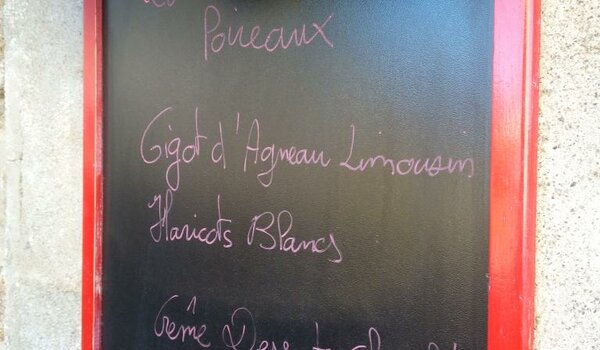 Poireaux
Gigot d'Agneau Limousin
Haricots Blancs
Crème